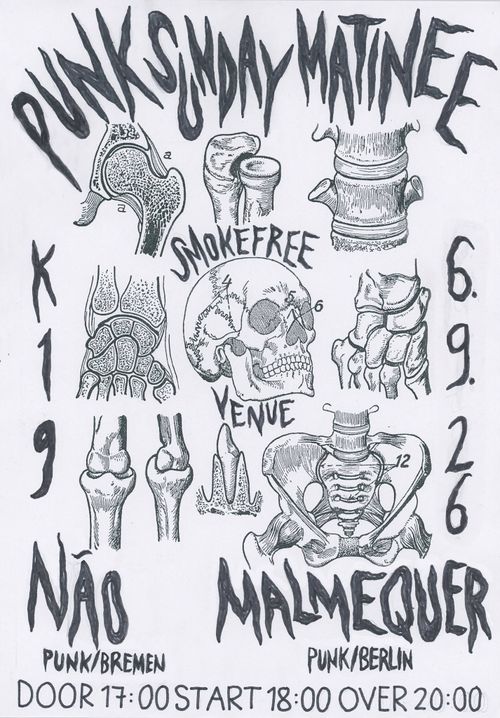 PUNK SUNDAY MATINEE
a
a
SMOKEFREE
4
5
6
K19
6.9.26
VENUE
12
NÃO
MALMEQUER
PUNK/BREMEN
PUNK/BERLIN
DOOR 17:00 START 18:00 OVER 20:00